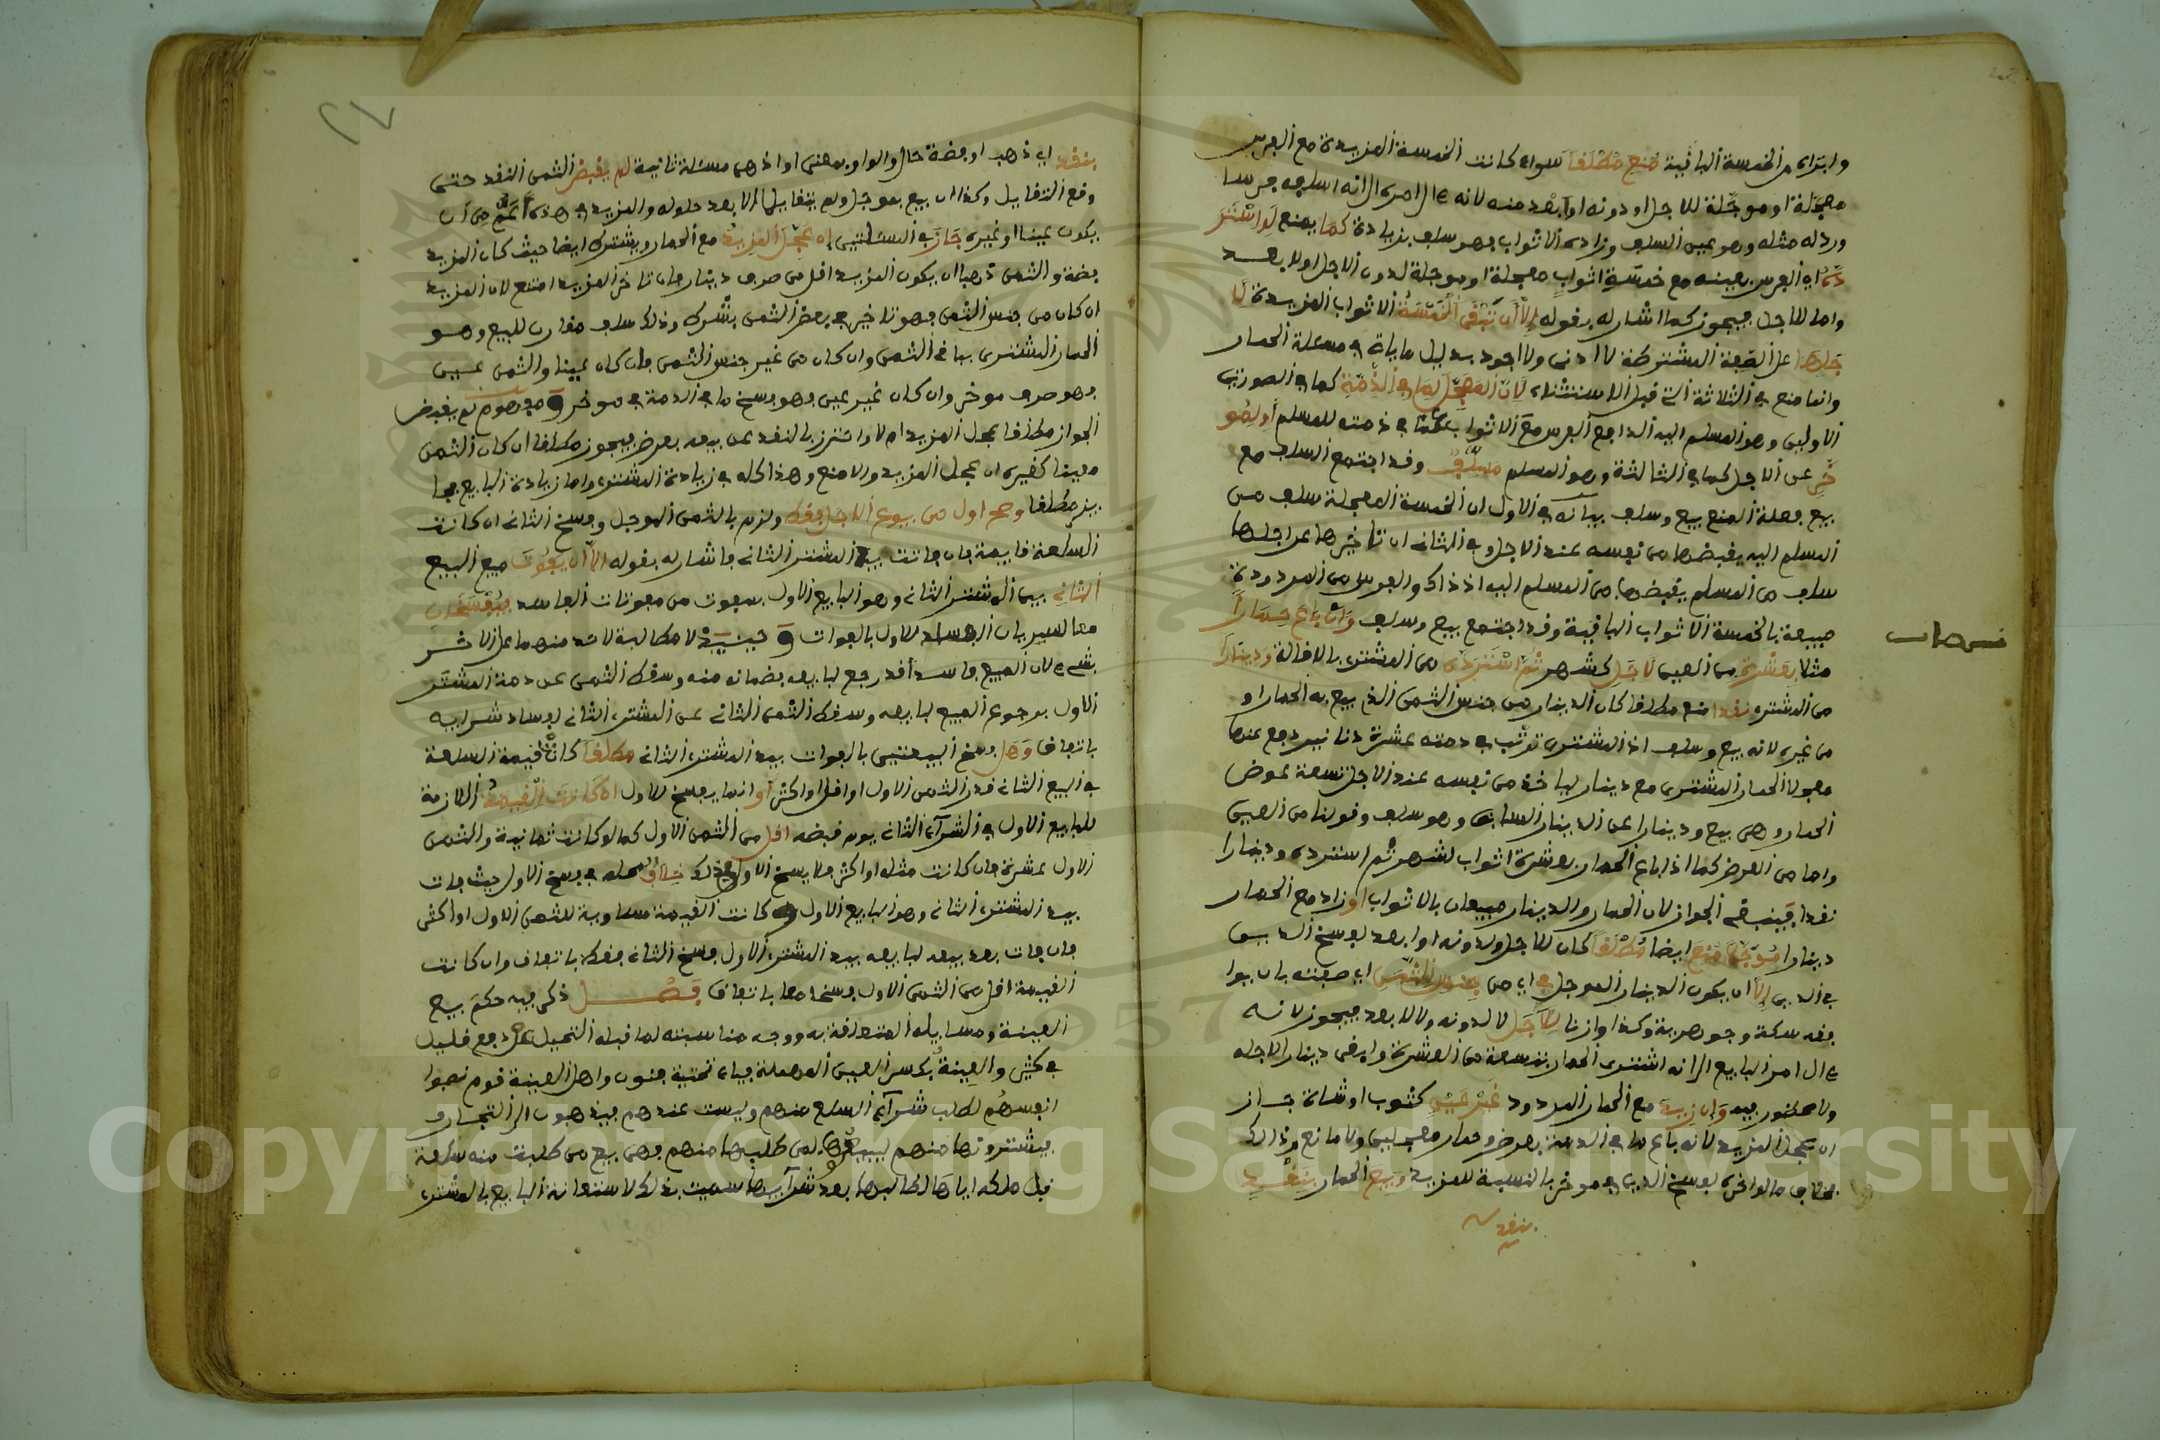 وابراء من الخمسة الباقية منع مطلقا سواء كانت الخمسة المزيدة مع الفرس
معجلة او موجلة للاجل او دونه او ابعد منه لانه ءال امره الى انه اسلف فرسا
ورد له مثله وهو عين السلف وزاده الاثواب فهو سلف بزيادة كما يمنع لو استرد
اي الفرس بعينه مع خمسة اثواب معجلة او موجلة لدون الاجل او لابعد
واما للاجل فيجوز كما اشار له بقوله الا ان تبقى الخمسة الاثواب المزيدة لا
جلها على الصفة المشترطة لا ادنى ولا اجود بدليل ما ياتي في مسئلة الحمار
وانما منع في الثلاثة التي قبل الاستثناء لان المعجل لما في الذمة كما في الصورتين
الاوليين وهو المسلم اليه الدافع الفرس مع الاثواب عما في ذمته للمسلم او الموـ
خر عن الاجل كما في الثالثة وهو المسلم مسلف وقد اجتمع السلف مع
بيع فعلة المنع بيع وسلف بيانه في الاول ان الخمسة المعجلة سلف من
المسلم اليه يقبضها من نفسه عند الاجل وفي الثاني ان تاخيرها عن اجلها
سلف من المسلم يقبضها من المسلم اليه اذ ذاك والفرس المردودة
مبيعة بالخمسة الاثواب الباقية وقد اجتمع بيع وسلف وان باع حمارا
مثلا بعشرة من العين لاجل كشهر ثم استرده من المشتري بالاقالة ودينارا
من المشتري نقدا منع مطلقا كان الدينار من جنس الثمن الذي بيع به الحمار او
من غيره لانه بيع وسلف اذ المشتري ترتب في ذمته عشرة دنانير دفع عنها
معجلا الحمار المشترى مع دينار لياخذ من نفسه عند الاجل تسعة عوض
الحمار وهي بيع ودينارا عن الدينار السابق وهو سلف وقولنا من العين
واما من العرض كما اذا باع الحمار بعشرة اثواب لشهر ثم استرده ودينارا
نقدا فينبغي الجواز لان الحمار والدينار مبيعان بالاثواب او زاد مع الحمار
دينارا موجلا منع ايضا مطلقا كان للاجل او لدونه او ابعد لفسخ الدين
في الدين الا ان يكون الدينار الموجل في اي من جنس الثمن اي صفته بان يوا
فقه سكة وجوهرية وكذا وازنا للاجل لا لدونه ولا لابعد فيجوز لانه
ءال امر البايع الى انه اشترى الحمار بتسعة من العشرة وابقى دينارا لاجله
ولا محظور فيه وان زيد مع الحمار المردود غير عين كثوب او شاة جاز
ان عجل المزيد لانه باع ما في الذمة بعرض وحمار معجلين ولا مانع من ذلك
بخلاف ما لو اخره لفسخ الدين في موخر بالنسبة للمزيد وبيع الحمار بنقد
بنقد
بنقد اي ذهب او فضة حال والواو بمعنى او اذ هي مسئلة ثانية لم يقبض الثمن النقد حتى
وقع التقايل وكذا ان بيع بموجل ولم يتقايلا الا بعد حلوله والمزيد في هذه اعم من ان
يكون عينا او غيره جاز في المسئلتين ان عجل المزيد مع الحمار ويشترط ايضا حيث كان المزيد
فضة والثمن ذهبا ان يكون المزيد اقل من صرف دينار فان تاخر المزيد امتنع لان المزيد
ان كان من جنس الثمن فهو تاخير في بعض الثمن بشرط وذلك سلف مقارن للبيع وهو
الحمار المشترى بباقي الثمن وان كان من غير جنس الثمن فان كان عينا والثمن عين
فهو صرف موخر وان كان غير عين فهو فسخ ما في الذمة في موخر ومفهوم لم يقبض
الجواز مطلقا عجل المزيد ام لا واحترز بالنقد عن بيعه بعرض فيجوز مطلقا ان كان الثمن
معينا كغيره ان عجل المزيد والا منع وهذا كله في زيادة المشتري واما زيادة البايع فجا
يز مطلقا وصح اول من بيوع الاجال فقط ولزم بالثمن الموجل وفسخ الثاني ان كانت
السلعة قايمة فان فاتت بيد المشتري الثاني فاشار له بقوله الا ان يفوت مبيع البيع
الثاني بيد المشتري الثاني وهو البايع الاول بمفوت من مفوتات الفاسد فيفسخان
معا لسريان الفساد للاول بالفوات وحينيذ لا مطالبة لاحد منهما على الاخر
بشيء لان المبيع فاسدا قد رجع لبايعه بضمانه منه وسقط الثمن عن ذمة المشتري
الاول برجوع المبيع لبايعه وسقط الثمن الثاني عن المشتري الثاني لفساد شرايه
باتفاق وهل يفسخ البيعتين بالفوات بيد المشتري الثاني مطلقا كانت قيمة السلعة
في البيع الثاني قدر الثمن الاول او اقل او اكثر او انما يفسخ الاول ان كانت القيمة اللازمة
للبايع الاول في الشراء الثاني يوم قبضه اقل من الثمن الاول كما لو كانت ثمانية والثمن
الاول عشرة فان كانت مثله او اكثر فلا يفسخ الاول في ذلك خلاف محله في فسخ الاول حيث فات
بيد المشتري الثاني وهو البايع الاول وكانت القيمة مساوية للثمن الاول او اكثر
فان فات بعد بيعه لبايعه بيد المشتري الاول فسخ الثاني فقط باتفاق وان كانت
القيمة اقل من الثمن الاول فسخا معا باتفاق فصل ذكر فيه حكم بيع
العينة ومسايله المتعلقة به ووجه مناسبته لما قبله التحيل على دفع قليل
في كثير والعينة بكسر العين المهملة فياء تحتية فنون واهل العينة قوم نصبوا
انفسهم لطلب شراء السلع منهم وليست عندهم فيذهبون الى التجار
فيشترونها منهم ليبيعوها لمن طلبها منهم فهي بيع من طلبت منه سلعة
قبل ملكه اياها لطالبها بعد شرايها سميت بذلك لاستعانة البايع بالمشتري